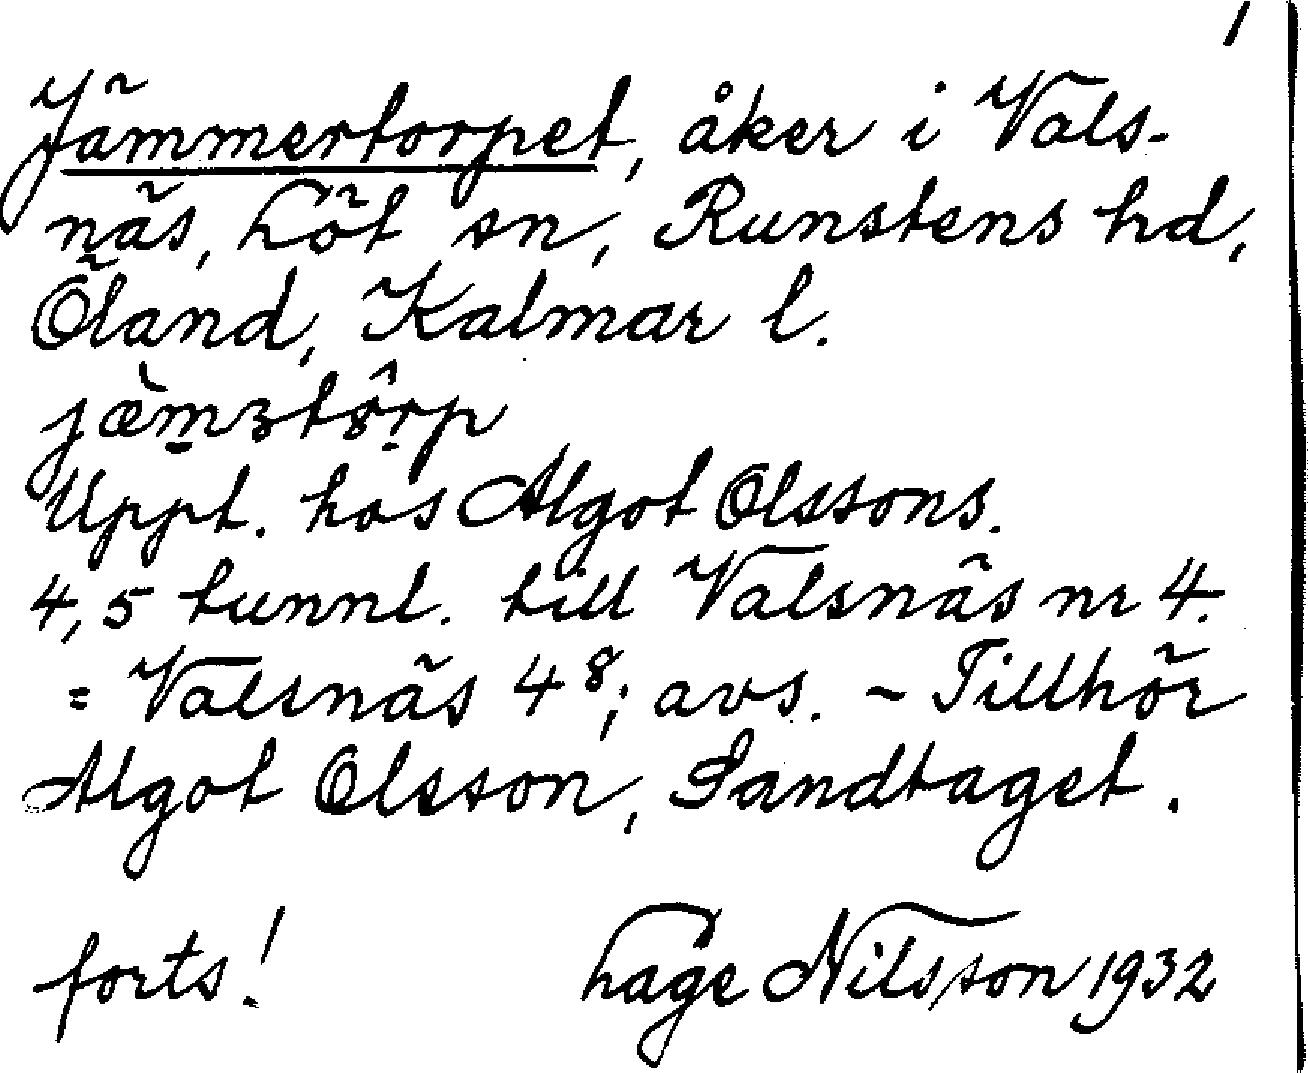 1
Jämmertorpet, åker i Vals-
näs, Löt sn, Runstens hd,
Öland, Kalmar l.
Uppt. hos Algot Olssons.
4,5 tunnl. till Valsnäs nr 4.
= Valsnäs 4⁸; avs. – Tillhör
Algot Olsson, Sandtaget.
forts! Hage Nilsson 1932